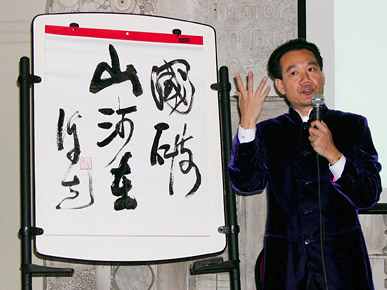 國破
山河在